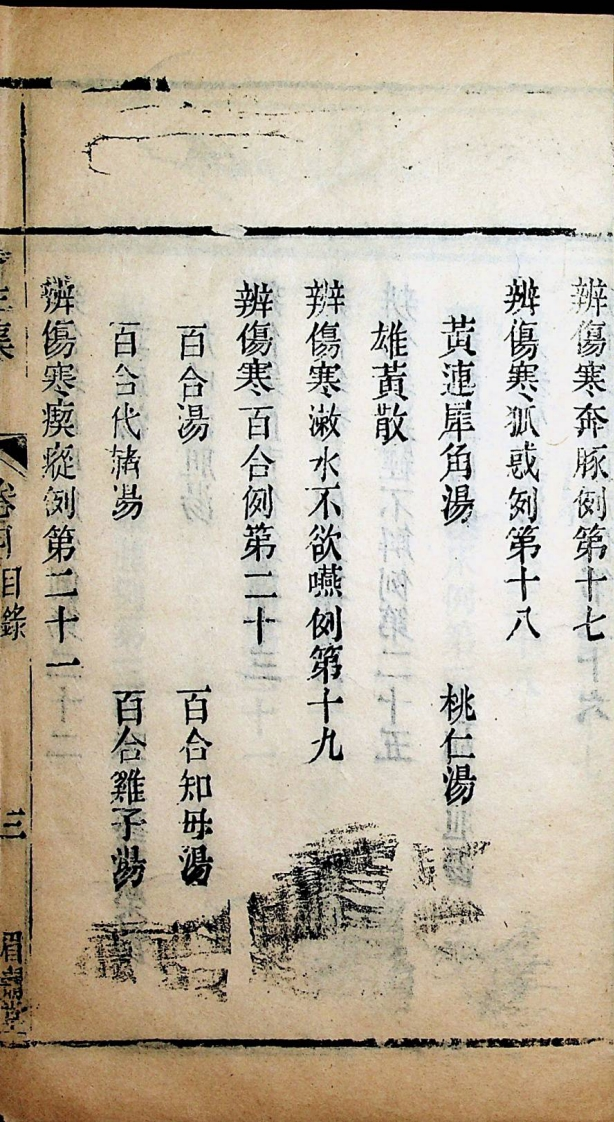 辨傷寒奔豚例第十七
辨傷寒狐惑例第十八
黃連犀角湯　桃仁湯
雄黃散
辨傷寒漱水不欲嚥例第十九
辨傷寒百合例第二十
百合湯　百合知母湯
百合代赭湯　百合雞子湯
辨傷寒瘈瘲例第二十一
集　卷四目錄　三　眉壽堂